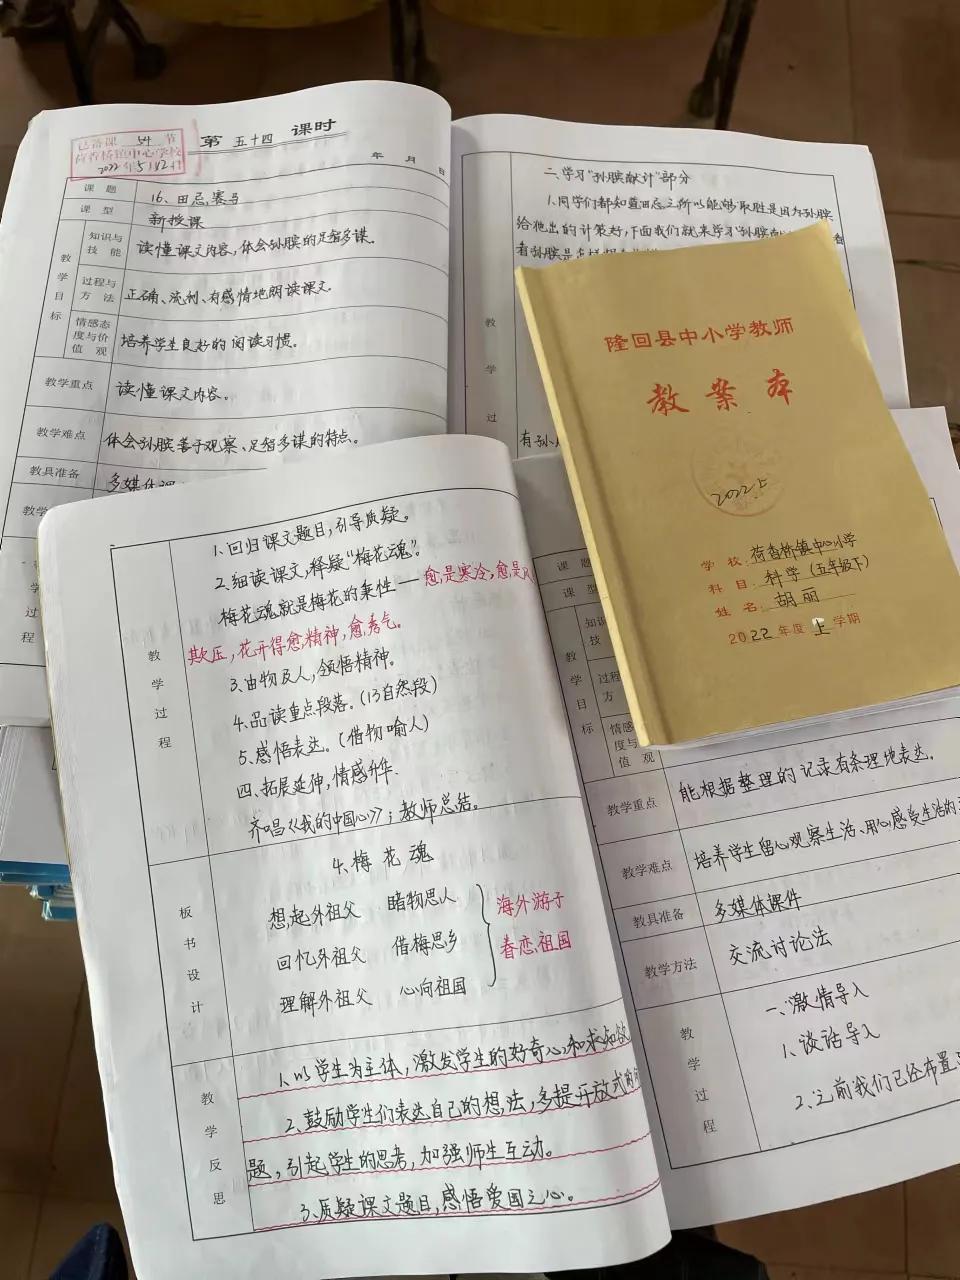 已备课 54 节
荷香桥镇中心学校
2022年5月12日
第 五十四 课时
年 月 日
课 题
16、田忌赛马
课 型
新授课
教学目标
知识与技 能
读懂课文内容,体会孙膑的足智多谋。
过程与方 法
正确、流利、有感情地朗读课文。
情感态度与价值 观
培养学生良好的阅读习惯。
教学重点
读懂课文内容。
教学难点
体会孙膑善于观察、足智多谋的特点。
教具准备
多媒体课
教学
过
程
二、学习“孙膑献计”部分
1.同学们都知道田忌之所以能够取胜是因为孙膑
给他出的计策好,下面我们就来学习“孙膑献
看孙膑是怎样
教
学
过
有孙
隆回县中小学教师
教案本
2022上
学 校: 荷香桥镇中心小学
科 目: 科学(五年级下)
姓 名: 胡丽
2022年度 上 学期
教学过程
1.回归课文题目,引导质疑。
2.细读课文,释疑“梅花魂”。
梅花魂就是梅花的秉性——愈是寒冷,愈是风
欺压,花开得愈精神,愈秀气。
3.由物及人,领悟精神。
4.品读重点段落。(13自然段)
5.感悟表达。(借物喻人)
四、拓展延伸,情感升华.
齐唱《我的中国心》;教师总结。
板书设计
4.梅花魂
想起外祖父 睹物思人
回忆外祖父 借梅思乡
理解外祖父 心向祖国
海外游子
眷恋祖国
教学反思
1.以学生为主体,激发学生的好奇心和求知欲
2.鼓励学生们表达自己的想法,多提开放式的问
题,引起学生的思考,加强师生互动。
3.质疑课文题目,感悟爱国之心。
课 题
课 型
教学目标
知识
技
过程
方
情感
度与
值 观
教学重点
能根据整理的记录有条理地表达。
教学难点
培养学生留心观察生活、用心感受生活的
教具准备
多媒体课件
教学方法
交流讨论法
教学过程
一、激情导入
1、谈话导入
2、之前我们已经布置